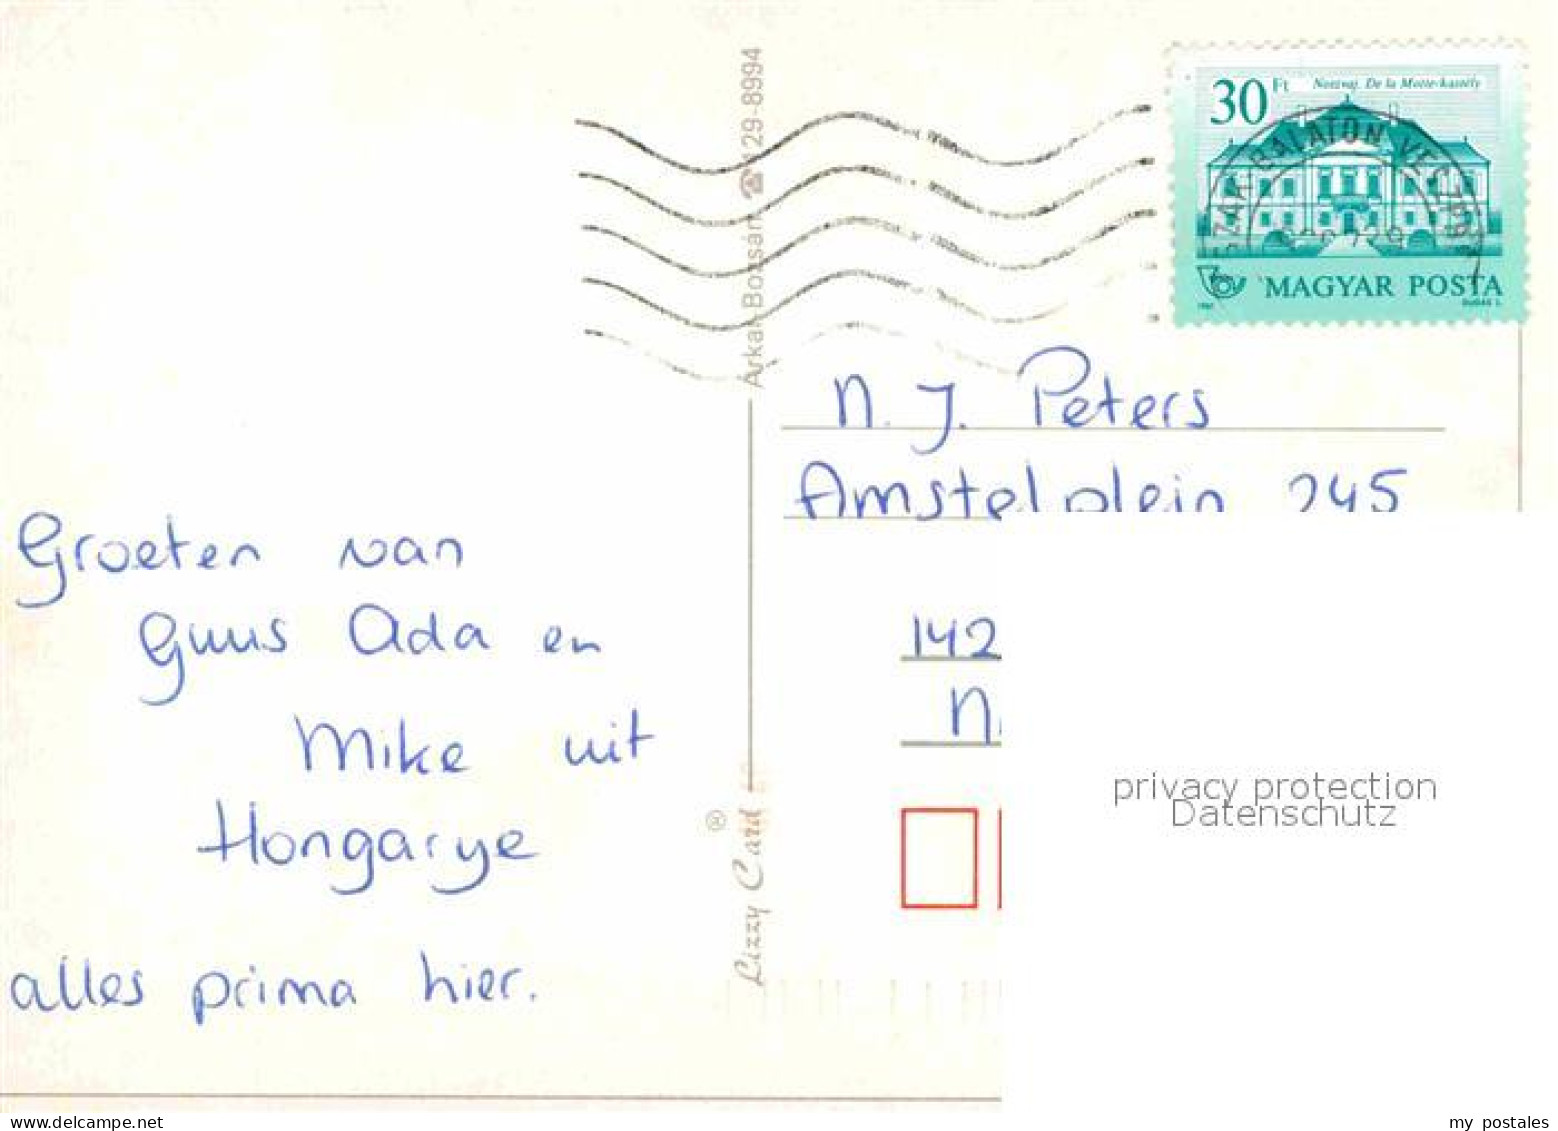 30 Ft Noszvaj, De la Motte-kastély
BALATON
MAGYAR POSTA
129-8994
N. J. Peters
Amstelplein 245
142
Groeten van
Guus Ada en
Mike uit
Hongarye
alles prima hier.
Lizzy Card ®
privacy protection
Datenschutz
my postales
www.delcampe.net